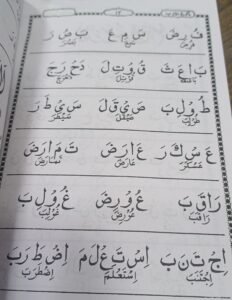 ١٢
فُ رِ ضَ سَ مِ عَ بَ صُ رَ
فُرِضَ سَمِعَ بَصُرَ
بَ ا عَ ثَ قُ و تِ لَ دَ حْ رَ جَ
بَاعَثَ قُوتِلَ دَحْرَجَ
طُ و لِ بَ صَ يْ قَ لَ سَ يْ طَ رَ
طُولِبَ صَيْقَلَ سَيْطَرَ
عَ سْ كَ رَ عَ ا رَ ضَ تَ مَ ا رَ ضَ
عَسْكَرَ عَارَضَ تَمَارَضَ
رَ ا قَ بَ عُ و رِ ضَ غُ و لِ بَ
رَاقَبَ عُورِضَ غُولِبَ
اِ جْ تَ نَ بَ اِ سْ تَ عْ لَ مَ اِ ضْ طَ رَ بَ
اِجْتَنَبَ اِسْتَعْلَمَ اِضْطَرَبَ